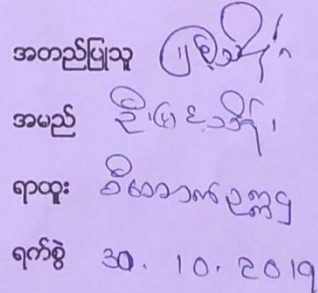 အတည်ပြုသူ
အမည် ဦးမြင့်သိန်း
ရာထူး စီမံအာဏာဥက္ကဋ္ဌ
ရက်စွဲ 30. 10. 2019